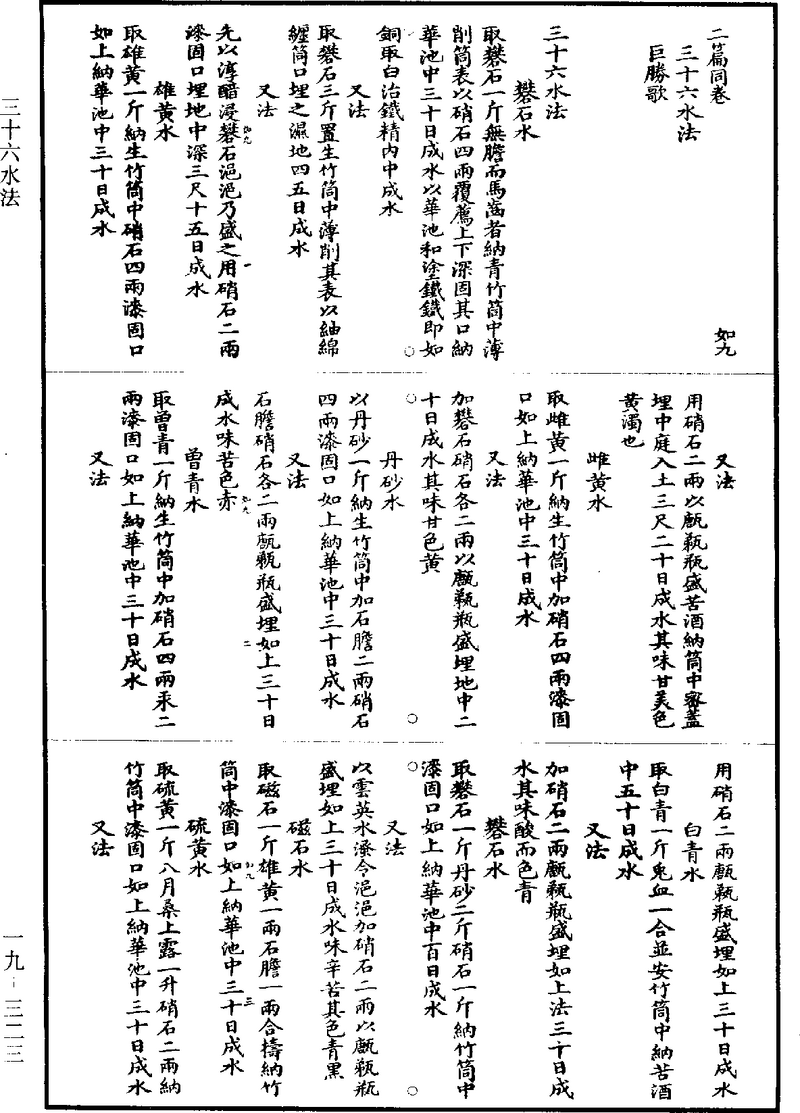 二篇同卷
三十六水法
巨勝歌
如九
三十六水法
礬石水
取礬石一斤無膽而馬齒者納青竹筒中薄
削筒表以硝石四兩覆薦上下深固其口納
華池中三十日成水以華池和塗鐵鐵即如
銅取白治鐵精內中成水
又法
取礬石三斤置生竹筒中薄削其表以紬綿
纏筒口埋之濕地四五日成水
又法
先以淳醋浸礬石浥浥乃盛之用硝石二兩
漆固口埋地中深三尺十五日成水
雄黃水
取雄黃一斤納生竹筒中硝石四兩漆固口
如上納華池中三十日成水
又法
用硝石二兩以甋瓶盛苦酒納筒中密蓋
埋中庭入土三尺二十日成水其味甘美色
黃濁也
雌黃水
取雌黃一斤納生竹筒中加硝石四兩漆固
口如上納華池中三十日成水
又法
加礬石硝石各二兩以瓶盛埋地中二
十日成水其味甘色黃
丹砂水
以丹砂一斤納生竹筒中加石膽二兩硝石
四兩漆固口如上納華池中三十日成水
又法
石膽硝石各二兩瓶盛埋如上三十日
成水味苦色赤
如九
二
曾青水
取曾青一斤納生竹筒中加硝石四兩汞二
兩漆固口如上納華池中三十日成水
又法
用硝石二兩瓶盛埋如上三十日成水
白青水
取白青一斤兔血一合並安竹筒中納苦酒
中五十日成水
又法
加硝石二兩瓶盛埋如上法三十日成
水其味酸而色青
礬石水
取礬石一斤丹砂二斤硝石一斤納竹筒中
漆固口如上納華池中百日成水
又法
以雲英水溲令浥浥加硝石二兩以瓶
盛埋如上三十日成水味辛苦其色青黑
磁石水
取磁石一斤雄黃一兩石膽一兩合擣納竹
筒中漆固口如上納華池中三十日成水
如九
三
硫黃水
取硫黃一斤八月桑上露一升硝石二兩納
竹筒中漆固口如上納華池中三十日成水
又法
三十六水法
一九-三二三